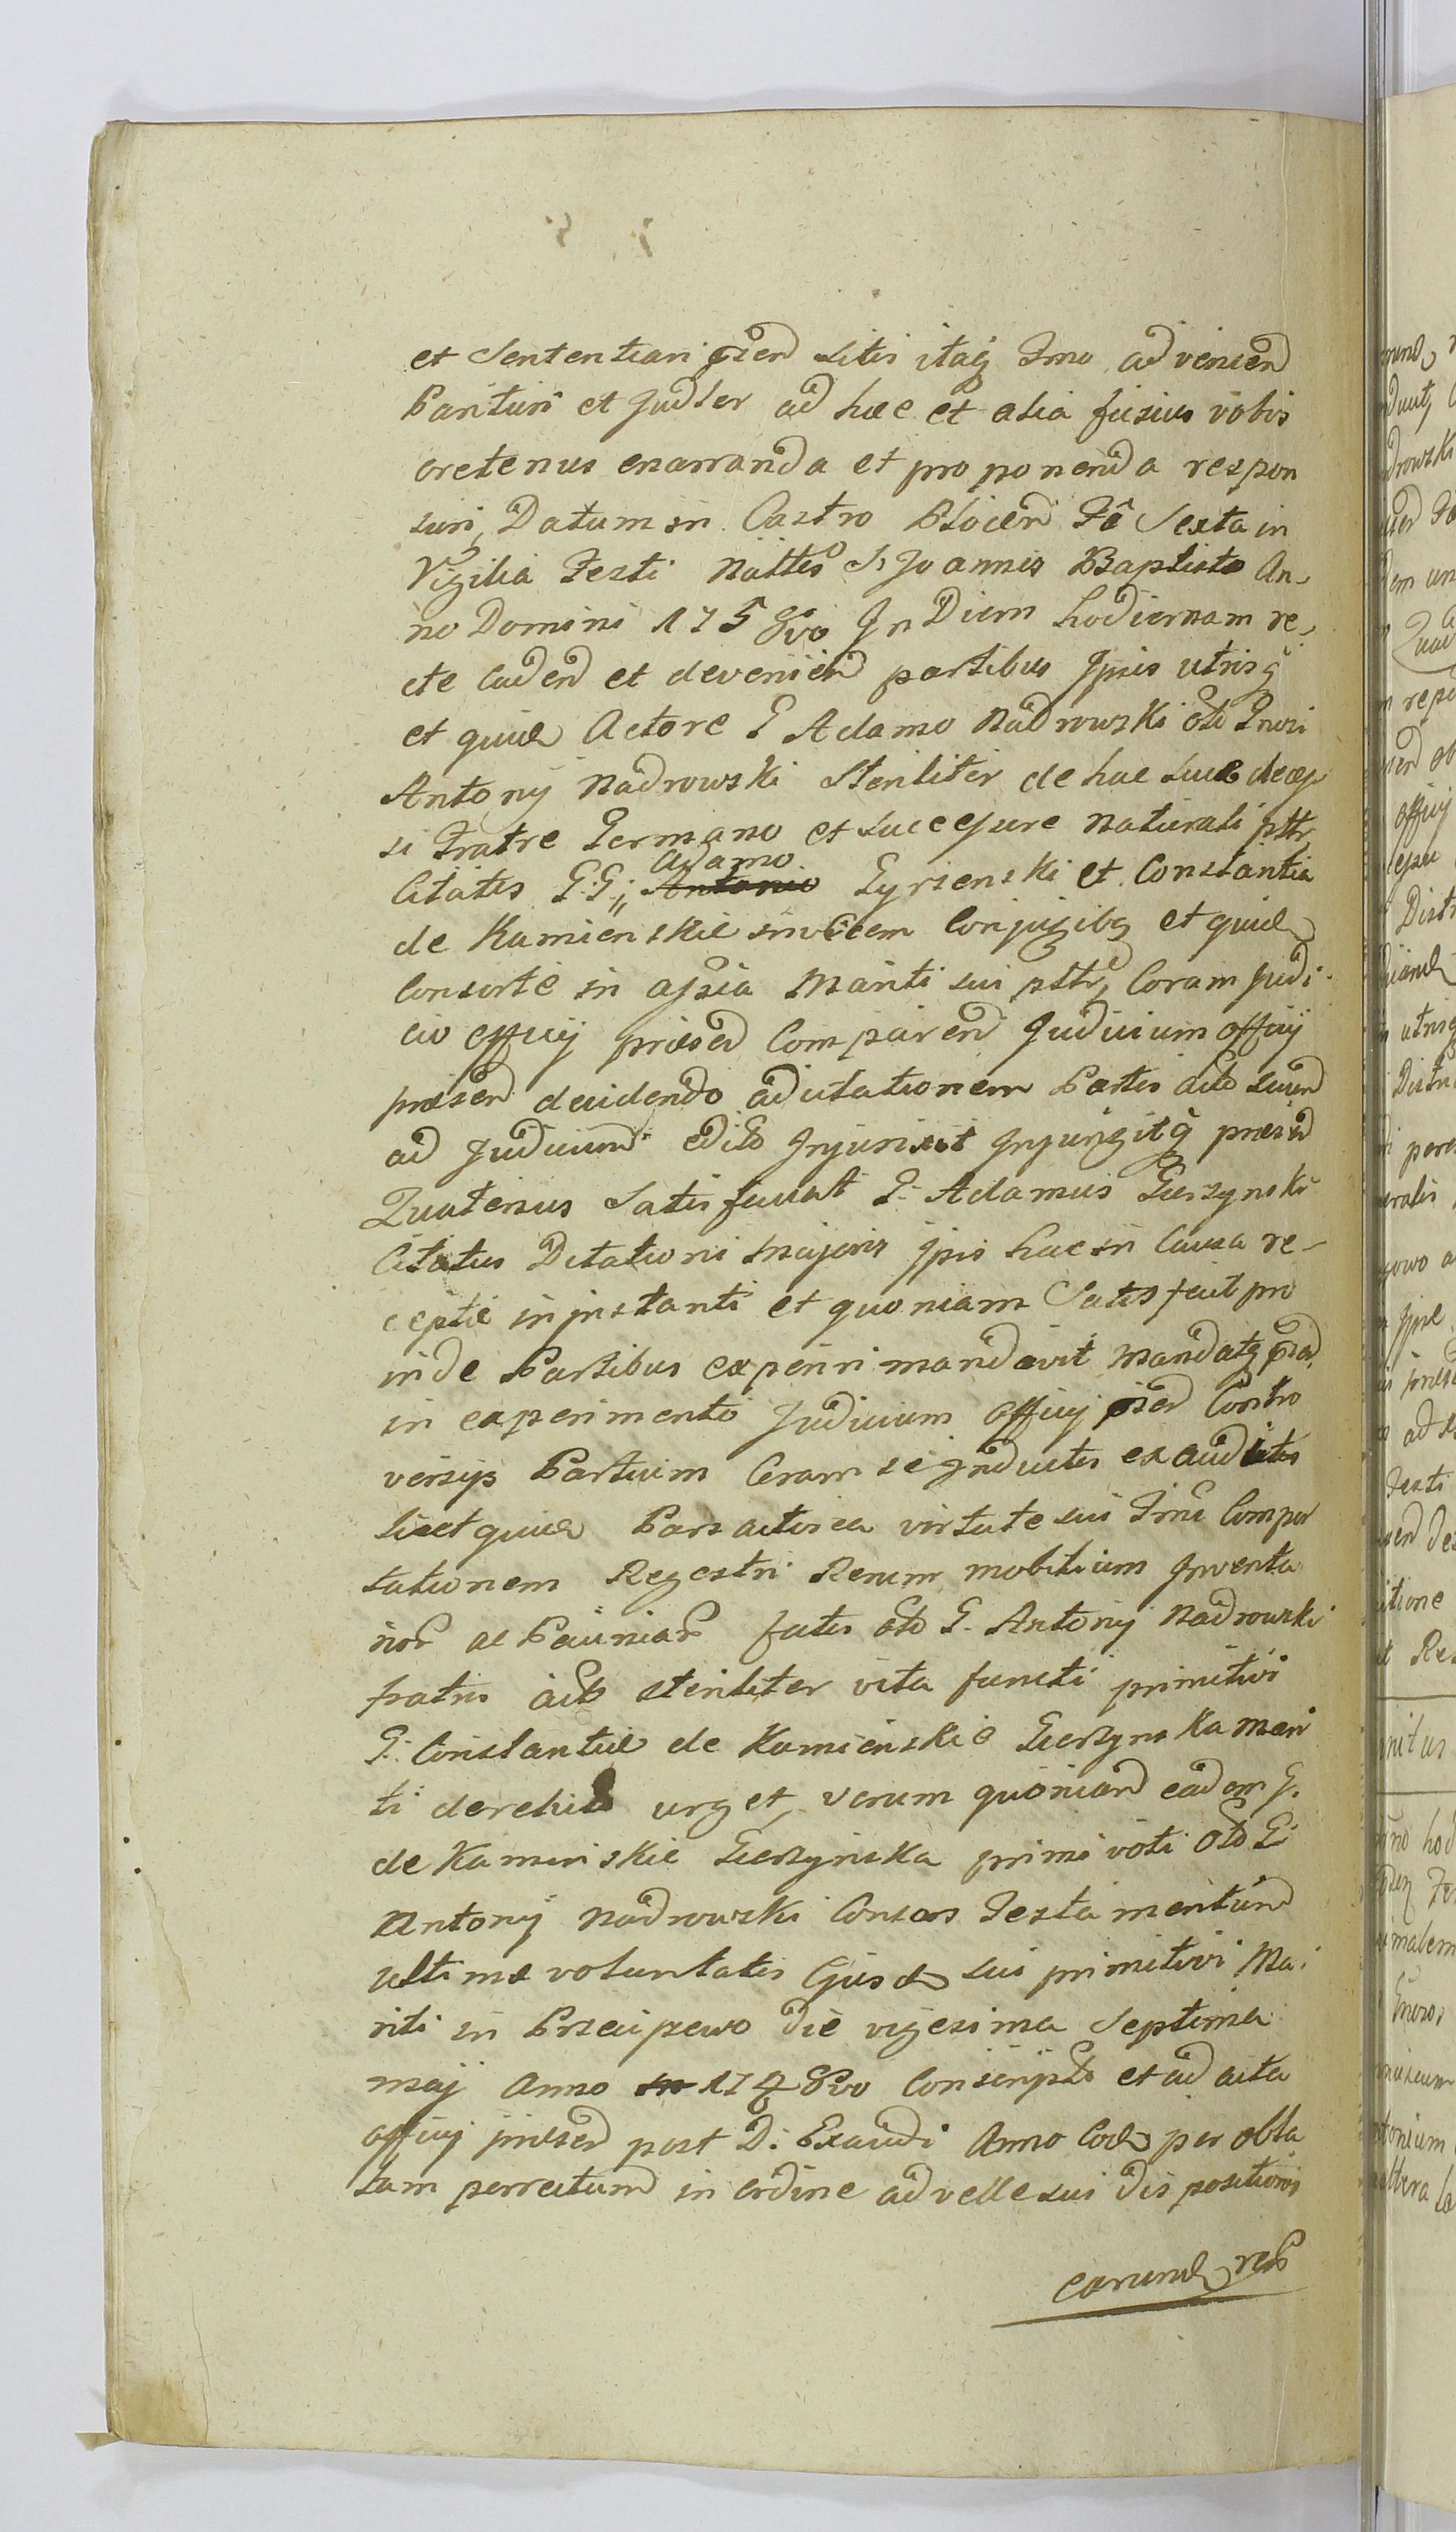 et Sententiari pser̃d Litis itaq̃ Tmo advenien̄d
Parituri et Judler ad hæc et alia fusius vobis
oretenus enarranda et proponenda respon
suri, Datum in Castro Płocen̄d Fã Sexta in
Vigilia Festi Nāttis S. Joannis Baptistæ An-
no Domini 1758vo In Diem hodiernam re-
cte caden̄d et devenien̄d partibus Ipsis utrisq̃
et quidē Actore G Adamo Nadrowski olī Gnosi
Antonij Nadrowski Steriliter de hac luce decęs
si Fratre Germano et Successore Naturali ptt̃r
Citatis G:G;, Adamo Antonio Gyrsenski et Constantia
de Kamienskie invicem Conjugibq et quidē
Consorte in assia Mariti sui ptt̃r, Coram Judi-
cio officij præsen̄d Comparen̄d Judicium officij
præsen̄d decidendo ad citationem Partis act̃o Suum̄d
ad Judicium edit̃o Injunxit Injungitq̃ præsen̄d
Quatenus Satisfaciat G: Adamus Gierzynski
Citatus Dilationi Majoris Ipsis hac in Causa re-
ceptæ in instanti et quoniam Satisfecit pro
inde Partibus experiri mandavit Mandatq̃ pser̃d
in experimento Judicium officij pser̃d Contro
versijs Partium Coram se Inductis exauditis
licet quidē Pars actorea virtute sui Tmi Compor
tationem Regestri Rerum mobilium Inventa
rior̃ ac Pecuniar̃ fatis olĩ G. Antonij Nadrowski
fratris act̃o steriliter vita functi primitivi
G: Constantiæ de Kamienskie Gierzynska Mari
ti derelict̃ urget, verum quoniam̄d eadem G.
de Kamienskie Gierzynska primi voti olĩ G:
Antonij Nadrowski Consors Testamentum̄d
ultimæ voluntatis Ejusdē sui primitivi Ma-
riti in Przeciszewo die vigesima Septima
maij Anno 1748vo Conscript̃ et ad acta
officij præsen̄d post D: Exaudi Anno eodē per obla
tam porrectum̄d in ordine ad velle sui dispositionis
earundē rer̃